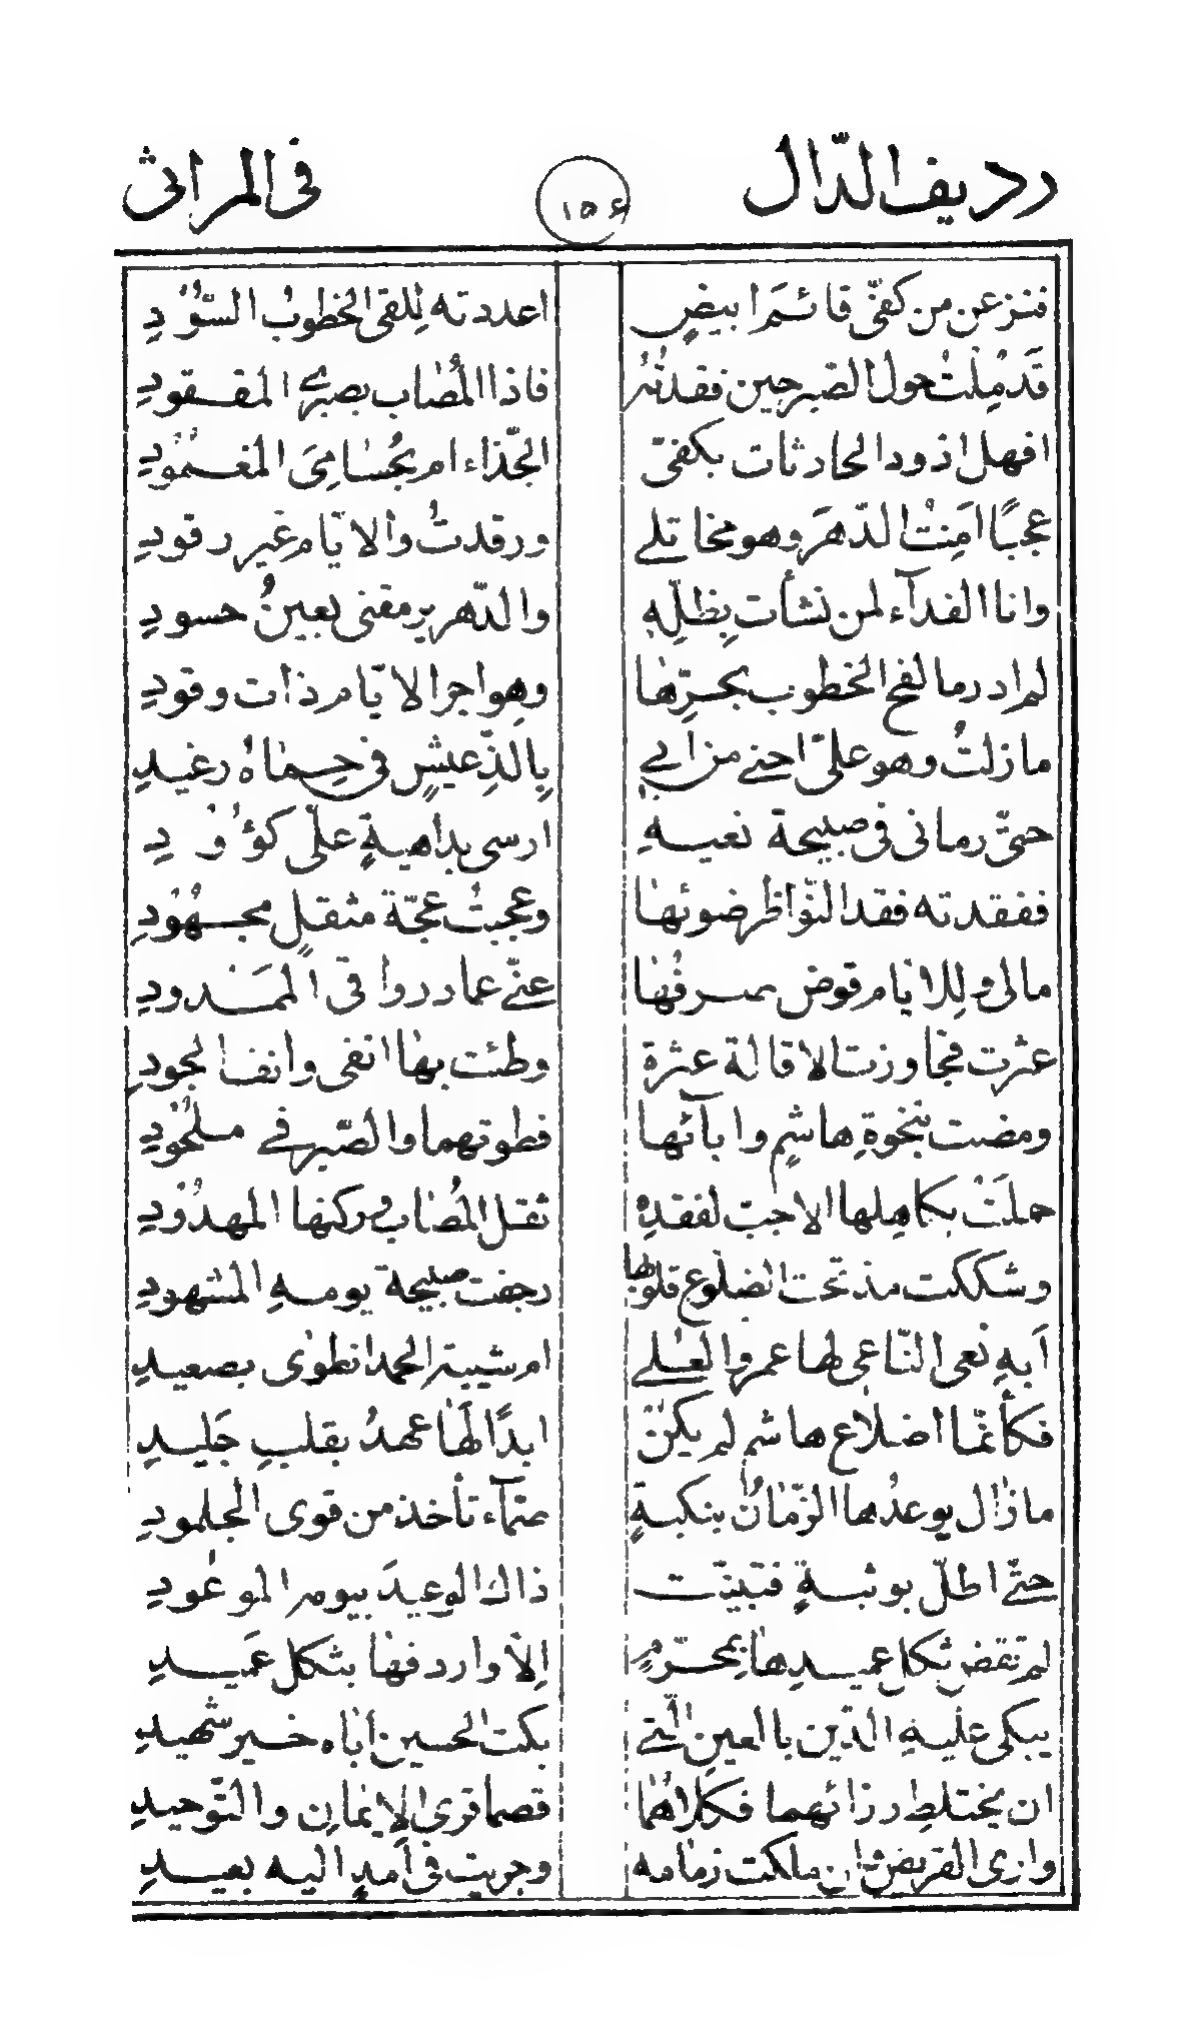 رديف الدّال ١٥٦ فى المراثى
فنزعن من كفّى قائمَ ابيضٍ اعددته لِلقى الخطوبُ السّوُدِ
قَد مِلتُ حول الصّبر حين فقدتهُ فاذا المُصاب بصبرىَ المفقودِ
افهل اذود الحادثات بكفّى الجّذاء ام بحُسامىَ المغمُودِ
عجبًا امَنِتُ الدّهرَ وهو مخاتلے ورقدتُ والايّام غير رقودِ
وانا الفدآء لمن نشأت بِظلِّهِ والدّهر يرمقنى بعينُ حسودِ
لم ادر ما لفح الخطوب بحرِّها وهو اجر الايّام ذات وقودِ
ما زلتُ وهو علىّ احنے من أبےٍ بِالذِّ عيشٍ فى حِماهُ رغيدِ
حتىّ رمانى فى صبيحة نعيهِ ارسى بداهيةٍ علّى كؤُودِ
ففقدته فقد النّواظر ضوئها وعججتُ عجّة مثقلٍ مجهُودِ
مالى وللايام قوض صرفُها عنّے عماد رواقى الممدودِ
عثرت فجاوزت الاقالة عثرة وطئت بها انفى وانف الجودِ
ومضت بنخوةِ هاشمٍ وابآئها فطوتهما والصّبر فے ملحُودِ
حملَتْ بكاهِلها الاجبّ لفقدِهِ ثقل المُصاب وركنها المهدُودِ
وشككت مذ تحت الضلوع قلوبها رجفت صبيحة يومهِ المشهودِ
أبهِ نعى النّاعى لها عمرو العُلے ام شيبة الحمد انطوى بصعيدِ
فكأنمّا اضلاع هاشم لم يكنّ ابدًا لَها عهدُ بقلبِ جَليدِ
ما زال يوعدُها الزّمانُ بنكبةٍ صمّآء تأخذ من قوى الجلمودِ
حتّے اطلّ بوثبةٍ فتبيّنت ذاك الوعيدَ بيوم الموعُودِ
لم تقض ثكل عميدِها بمحرّمٍ اِلاّ وارد فها بثكل عَميدِ
يبكى عليهِ الدّين بالعينِ الّتے بكت الحسين أباه خير شهيدِ
ان يختلط رزائهما فكلاهُما قصما قرى الايمان والتّوحيدِ
وارى القريض وان ملكت زمامه وجريت فى أمدٍ اليه بعيدِ